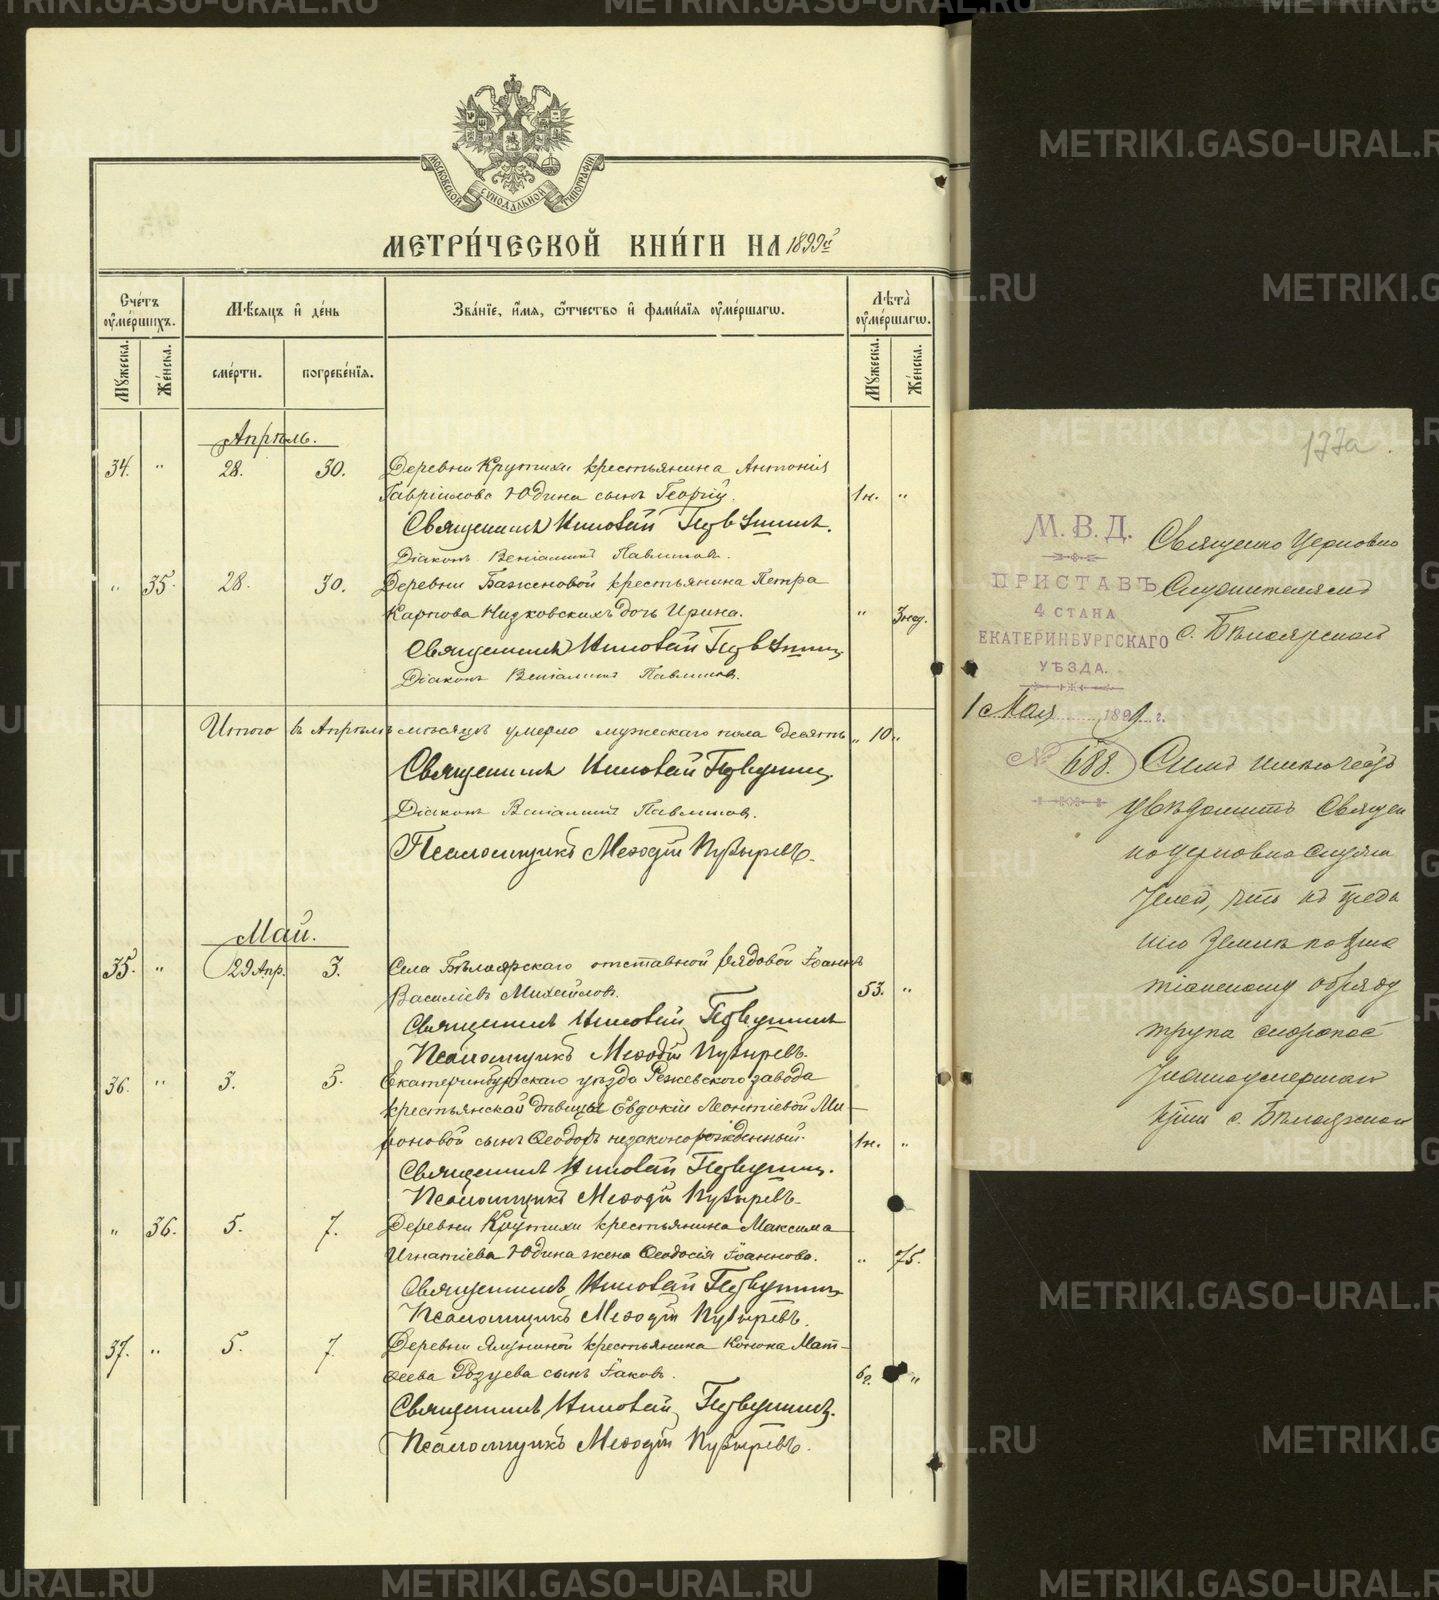 МОСКОВСКОЙ СѶНОДАЛЬНОЙ ТИПОГРАФІИ
МЕТРИ́ЧЕСКОЙ КНИ́ГИ НА 1899й
Сче́тъ ᲂу҆ме́ршихъ.
Мѣ́сяцъ и҆ де́нь
Зва́нїе, и҆́мя, ѻ҆́тчество и҆ фами́лїя ᲂу҆ме́ршагѡ.
Лѣта̀ ᲂу҆ме́ршагѡ.
Мꙋ́жеска.
Же́нска.
сме́рти.
погребе́нїя.
Мꙋ́жеска.
Же́нска.
Апрѣль.
34. " 28. 30. Деревни Крутихи крестьянина Антонія
Гавріилова Юдина сынъ Георгій. 1н. "
Священникъ Николай Первушинъ.
Діаконъ Веніаминъ Павлиновъ.
" 35. 28. 30. Деревни Баженовой крестьянина Петра
Карпова Низковскихъ дочь Ирина. " 3нед.
Священникъ Николай Первушинъ
Діаконъ Веніаминъ Павлиновъ.
Итого въ Апрѣлѣ мѣсяцѣ умерло мужескаго пола десять " 10 "
Священникъ Николай Первушинъ
Діаконъ Веніаминъ Павлиновъ.
Псаломщикъ Меѳодій Пузыревъ.
Май.
35. " 29 Апр. 3. Села Бѣлоярскаго отставной рядовой Іоаннъ
Василіевъ Михайловъ. 53. "
Священникъ Николай Первушинъ
Псаломщикъ Меѳодій Пузыревъ.
36. " 3. 5. Екатеринбургскаго уѣзда Режевского завода
крестьянской дѣвицы Евдокіи Леонтіевой Ми-
роновой сынъ Ѳеодоръ незаконорожденный. 1н. "
Священникъ Николай Первушинъ.
Псаломщикъ Меѳодій Пузыревъ.
" 36. 5. 7. Деревни Крутихи крестьянина Максима
Игнатіева Юдина жена Ѳеодосія Іоаннова. " 75.
Священникъ Николай Первушинъ
Псаломщикъ Меѳодій Пузыревъ.
37. " 5. 7. Деревни крестьянина Конона Мат-
ѳеева сынъ Іаковъ. 6 "
Священникъ Николай Первушинъ.
Псаломщикъ Меѳодій Пузыревъ.
177а.
М.В.Д.
ПРИСТАВЪ
4 СТАНА
ЕКАТЕРИНБУРГСКАГО
УѢЗДА.
1 Мая 1899 г.
№ 688.
Священно Церковно
Служителямъ
с. Бѣлоярскаго
Симъ имѣю честь
увѣдомить Священ
ноцерковнослужи
телей, что къ преда
нію землѣ по хри
тіанскому обряду
трупа скоропос
тижноумершаго
с. Бѣлоярскаго
METRIKI.GASO-URAL.RU